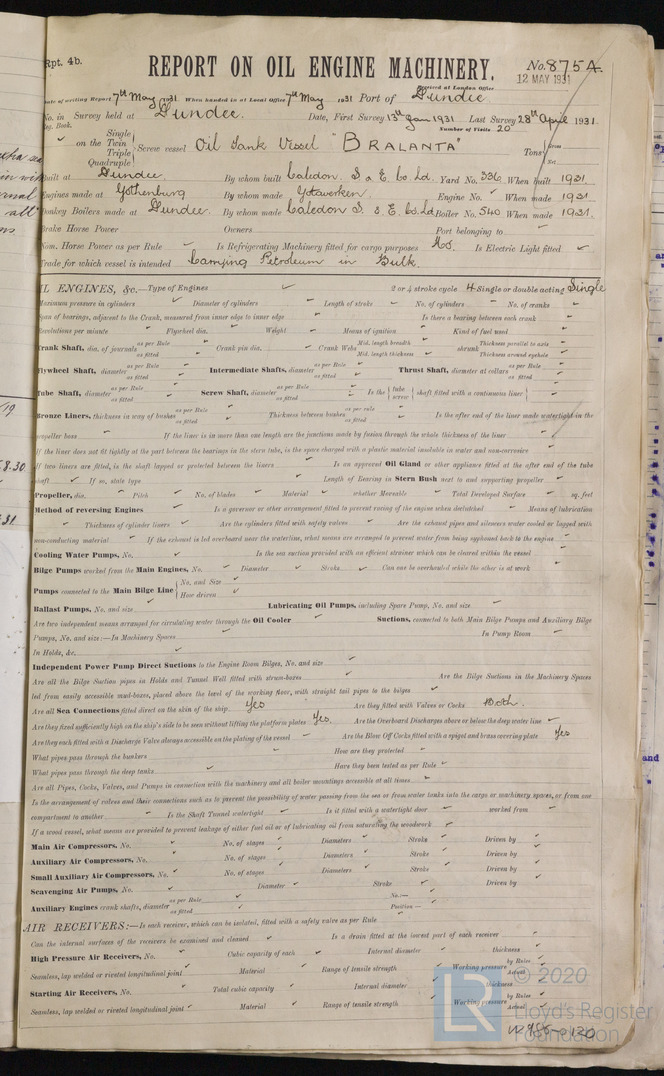 Rpt. 4b.
REPORT ON OIL ENGINE MACHINERY.
No. 8754.
Received at London Office
12 MAY 1931
Date of writing Report 7th May 1931 When handed in at Local Office 7th May 1931 Port of Dundee
No. in Survey held at Dundee. Date, First Survey 13th Jan 1931 Last Survey 28th April 1931.
Reg. Book. Number of Visits 20
on the Single Twin Triple Quadruple Screw vessel Oil Tank Vessel "BRALANTA" Tons Gross Net
Built at Dundee By whom built Caledon S. & E. Co. Ld. Yard No. 336 When built 1931
Engines made at Gothenburg By whom made Gotaverken Engine No. ✓ When made 1931
Donkey Boilers made at Dundee. By whom made Caledon S. & E. Co. Ld. Boiler No. 540 When made 1931.
Brake Horse Power Owners Port belonging to
Nom. Horse Power as per Rule Is Refrigerating Machinery fitted for cargo purposes No. Is Electric Light fitted ✓
Trade for which vessel is intended Carrying Petroleum in Bulk.
OIL ENGINES, &c.—Type of Engines 2 or 4 stroke cycle 4 Single or double acting Single
Maximum pressure in cylinders Diameter of cylinders Length of stroke No. of cylinders No. of cranks
Span of bearings, adjacent to the Crank, measured from inner edge to inner edge Is there a bearing between each crank
Revolutions per minute Flywheel dia. Weight Means of ignition Kind of fuel used
Crank Shaft, dia. of journals as per Rule as fitted Crank pin dia. Crank Webs Mid. length breadth Mid. length thickness shrunk Thickness parallel to axis Thickness around eyehole
Flywheel Shaft, diameter as per Rule as fitted Intermediate Shafts, diameter as per Rule as fitted Thrust Shaft, diameter at collars as per Rule as fitted
Tube Shaft, diameter as per Rule as fitted Screw Shaft, diameter as per Rule as fitted Is the tube screw shaft fitted with a continuous liner
Bronze Liners, thickness in way of bushes as per Rule as fitted Thickness between bushes as per rule as fitted Is the after end of the liner made watertight in the
propeller boss If the liner is in more than one length are the junctions made by fusion through the whole thickness of the liner
If the liner does not fit tightly at the part between the bearings in the stern tube, is the space charged with a plastic material insoluble in water and non-corrosive
If two liners are fitted, is the shaft lapped or protected between the liners Is an approved Oil Gland or other appliance fitted at the after end of the tube
shaft If so, state type Length of Bearing in Stern Bush next to and supporting propeller
Propeller, dia. Pitch No. of blades Material whether Moveable Total Developed Surface sq. feet
Method of reversing Engines Is a governor or other arrangement fitted to prevent racing of the engine when declutched Means of lubrication
Thickness of cylinder liners Are the cylinders fitted with safety valves Are the exhaust pipes and silencers water cooled or lagged with
non-conducting material If the exhaust is led overboard near the waterline, what means are arranged to prevent water from being syphoned back to the engine
Cooling Water Pumps, No. Is the sea suction provided with an efficient strainer which can be cleared within the vessel
Bilge Pumps worked from the Main Engines, No. Diameter Stroke Can one be overhauled while the other is at work
Pumps connected to the Main Bilge Line No. and Size How driven
Ballast Pumps, No. and size Lubricating Oil Pumps, including Spare Pump, No. and size
Are two independent means arranged for circulating water through the Oil Cooler Suctions, connected to both Main Bilge Pumps and Auxiliary Bilge
Pumps, No. and size:—In Machinery Spaces In Pump Room
In Holds, &c.
Independent Power Pump Direct Suctions to the Engine Room Bilges, No. and size
Are all the Bilge Suction pipes in Holds and Tunnel Well fitted with strum-boxes Are the Bilge Suctions in the Machinery Spaces
led from easily accessible mud-boxes, placed above the level of the working floor, with straight tail pipes to the bilges
Are all Sea Connections fitted direct on the skin of the ship Yes Are they fitted with Valves or Cocks Both.
Are they fixed sufficiently high on the ship's side to be seen without lifting the platform plates Yes. Are the Overboard Discharges above or below the deep water line
Are they each fitted with a Discharge Valve always accessible on the plating of the vessel Are the Blow Off Cocks fitted with a spigot and brass covering plate Yes
What pipes pass through the bunkers How are they protected
What pipes pass through the deep tanks Have they been tested as per Rule
Are all Pipes, Cocks, Valves, and Pumps in connection with the machinery and all boiler mountings accessible at all times
Is the arrangement of valves and their connections such as to prevent the possibility of water passing from the sea or from water tanks into the cargo or machinery spaces, or from one
compartment to another Is the Shaft Tunnel watertight Is it fitted with a watertight door worked from
If a wood vessel, what means are provided to prevent leakage of either fuel oil or of lubricating oil from saturating the woodwork
Main Air Compressors, No. No. of stages Diameters Stroke Driven by
Auxiliary Air Compressors, No. No. of stages Diameters Stroke Driven by
Small Auxiliary Air Compressors, No. No. of stages Diameters Stroke Driven by
Scavenging Air Pumps, No. Diameter Stroke Driven by
Auxiliary Engines crank shafts, diameter as per Rule as fitted No.:— Position—
AIR RECEIVERS:—Is each receiver, which can be isolated, fitted with a safety valve as per Rule
Can the internal surfaces of the receivers be examined and cleaned Is a drain fitted at the lowest part of each receiver
High Pressure Air Receivers, No. Cubic capacity of each Internal diameter thickness
Seamless, lap welded or riveted longitudinal joint Material Range of tensile strength Working pressure by Rules Actual
Starting Air Receivers, No. Total cubic capacity Internal diameter thickness
Seamless, lap welded or riveted longitudinal joint Material Range of tensile strength Working pressure by Rules Actual
© 2020
LR Lloyd's Register
Foundation
W986-0120